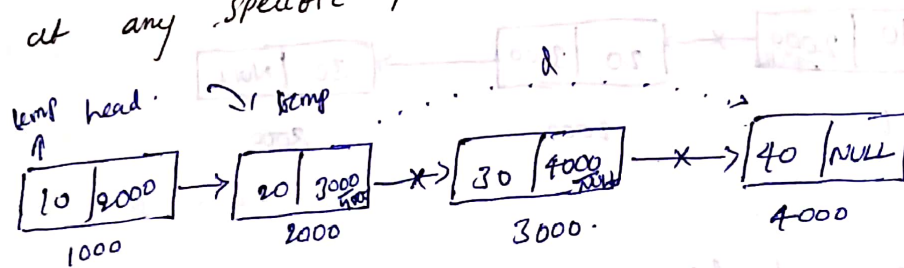 at any specific
d
temp head. temp
10 2000 20 3000 4000 30 4000 NULL 40 NULL
1000 2000 3000. 4000